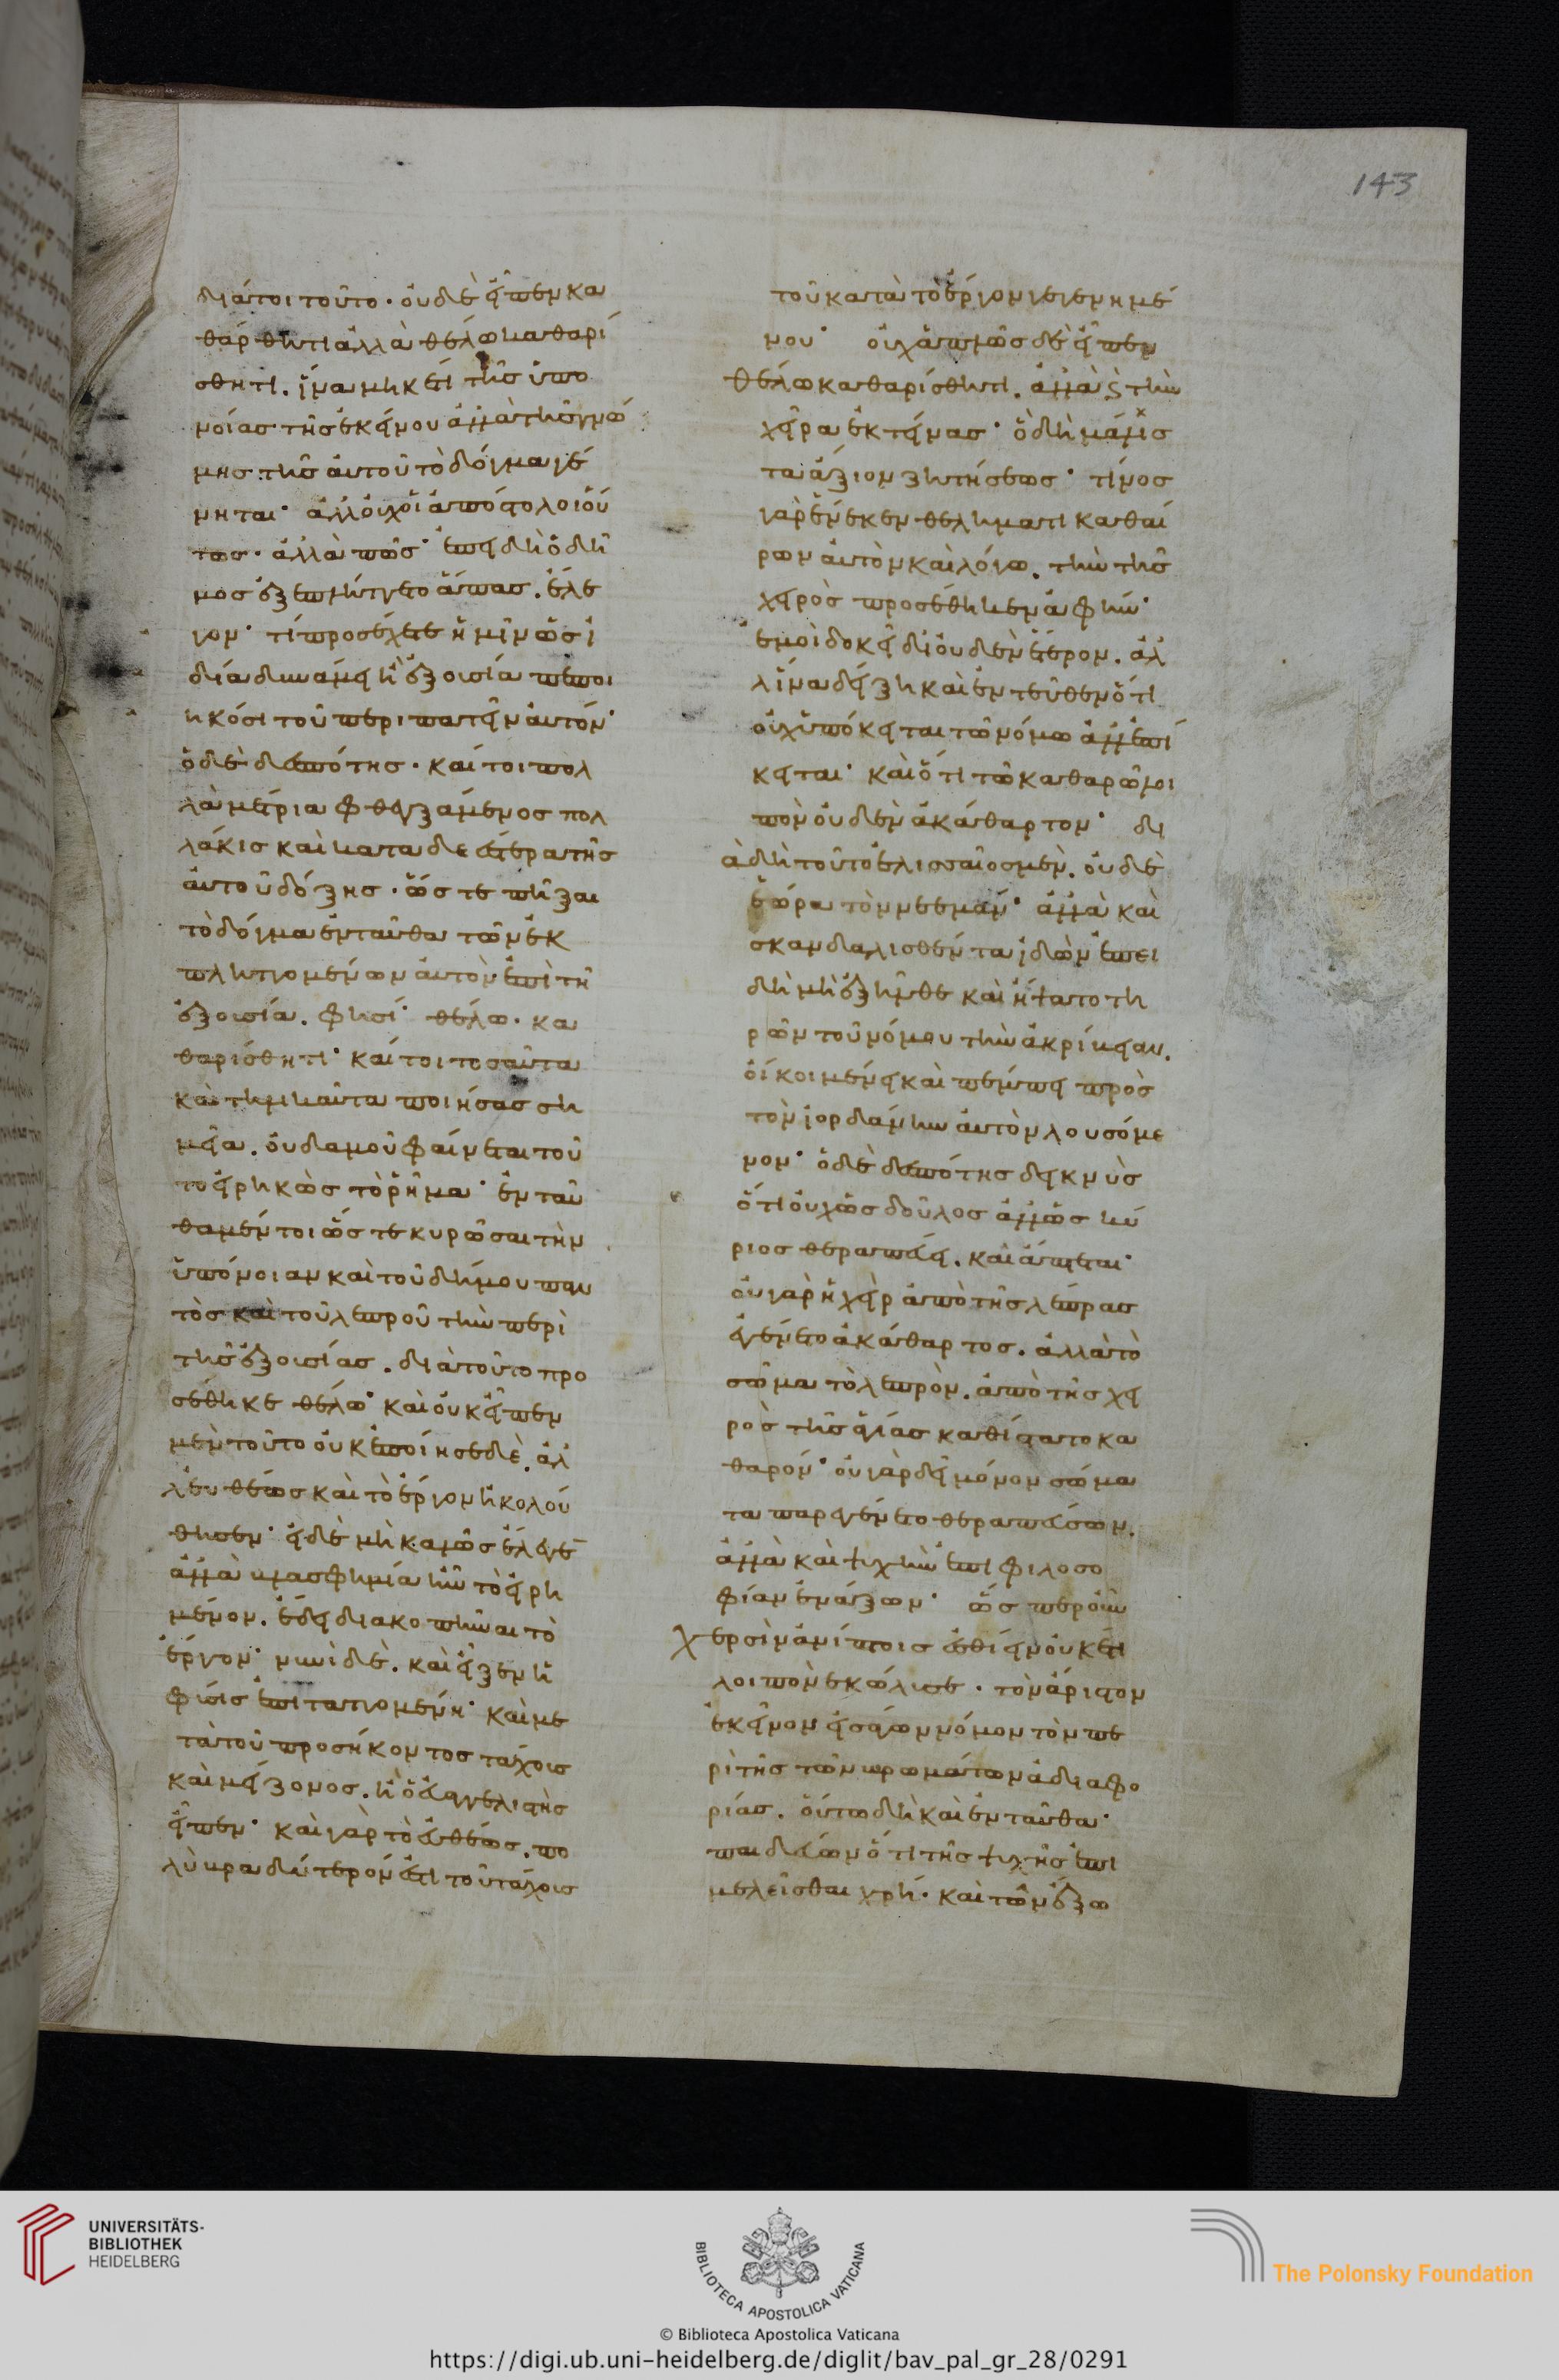 143
διάτοι τοῦτο· οὐδὲ εἶπεν κα
θάρθητι ἀλλὰ θέλω καθαρί
σθητι. ἵνα μηκέτι τῆς ὑπο
νοίας τῆς ἐκείνου ἀλλὰ τῆς γνώ
μης τῆς αὐτοῦ τὸ δόγμα γέ
νηται· ἀλλ' οὐχ οἱ ἀπόστολοι οὕ
τως· ἀλλὰ πῶς· ἐπειδὴ ὁ δῆ
μος ἐξεπλήττετο ἅπας. ἔλε
γον· τί προσέχετε ἡμῖν ὡς ἰ
δία δυνάμει ἢ ἐξουσία πεποι
ηκόσι τοῦ περιπατεῖν αὐτόν·
ὁ δὲ δεσπότης· καίτοι πολ
λὰ μέτρια φθεγξάμενος πολ
λάκις καὶ καταδεέστερα τῆς
αὐτοῦ δόξης· ὥστε πῆξαι
τὸ δόγμα ἐνταῦθα τῶν ἐκ
πληττομένων αὐτὸν ἐπὶ τῆ
ἐξουσία. φησί· θέλω· κα
θαρίσθητι· καίτοι τοσαῦτα
καὶ τηλικαῦτα ποιήσας ση
μεῖα. οὐδαμοῦ φαίνεται τοῦ
το εἰρηκὼς τὸ ῥῆμα· ἐνταῦ
θα μέντοι ὥστε κυρῶσαι τὴν
ὑπόνοιαν καὶ τοῦ δήμου παν
τὸς καὶ τοῦ λεπροῦ τὴν περὶ
τῆς ἐξουσίας. διὰ τοῦτο προ
σέθηκε θέλω· καὶ οὐκ εἶπεν
μὲν τοῦτο οὐκ ἐποίησε δὲ. ἀλ
λ' εὐθέως καὶ τὸ ἔργον ἠκολού
θησεν· εἰ δὲ μὴ καλῶς ἔλεγε
ἀλλὰ βλασφημία ἦν τὸ εἰρη
μένον. ἔδει διακοπῆναι τὸ
ἔργον· νυνὶ δὲ. καὶ εἶξεν ἡ
φύσις ἐπιταττομένη· καὶ με
τὰ τοῦ προσήκοντος τάχους
καὶ μείζονος. ἢ ὁ εὐαγγελιστὴς
εἶπεν· καὶ γὰρ τὸ εὐθέως. πο
λὺ βραδύτερόν ἐστι τοῦ τάχους
τοῦ κατὰ τὸ ἔργον γεγενημέ
νου· οὐχ ἁπλῶς δὲ εἶπεν
θέλω καθαρίσθητι. ἀλλὰ καὶ τὴν
χεῖρα ἐκτείνας· ὃ δὴ μάλισ
τα ἄξιον ζητήσεως· τίνος
γὰρ ἕνεκεν θελήματι καθαί
ρων αὐτὸν καὶ λόγω. τὴν τῆς
χειρὸς προσέθηκεν ἁφήν·
ἐμοὶ δοκεῖ δι' οὐδὲν ἕτερον. ἀλ
λ' ἵνα δείξη καὶ ἐντεῦθεν ὅτι
οὐχ ὑπόκειται τῶ νόμω ἀλλ' ἐπί
κειται· καὶ ὅτι τῶ καθαρῶ λοι
πὸν οὐδὲν ἀκάθαρτον· δι
ὰ δὴ τοῦτο ἐλισσαῖος μὲν. οὐδὲ
ἑώρα τὸν νεεμάν· ἀλλὰ καὶ
σκανδαλισθέντα ἰδὼν ἐπει
δὴ μὴ ἐξῆλθε καὶ ἥψατο τη
ρῶν τοῦ νόμου τὴν ἀκρίβειαν.
οἴκοι μένει καὶ πέμπει πρὸς
τὸν ἰορδάνην αὐτὸν λουσόμε
νον· ὁ δὲ δεσπότης δεικνὺς
ὅτι οὐχ ὡς δοῦλος ἀλλ' ὡς κύ
ριος θεραπεύει. καὶ ἅπτεται·
οὐ γὰρ ἡ χεὶρ ἀπὸ τῆς λέπρας
ἐγένετο ἀκάθαρτος. ἀλλὰ τὸ
σῶμα τὸ λεπρὸν. ἀπὸ τῆς χει
ρὸς τῆς ἁγίας καθίστατο κα
θαρόν· οὐ γὰρ δεῖ μόνον σώμα
τα παρεγένετο θεραπεύσων.
ἀλλὰ καὶ ψυχὴν ἐπὶ φιλοσο
φίαν ἐνάξων· ὥσπερ οὖν
χερσὶν ἀνίπτοις ἐσθίειν οὐκέτι
λοιπὸν ἐκώλυσε· τὸν ἄριστον
ἐκεῖνον εἰσάγων νόμον τὸν πε
ρὶ τῆς τῶν βρωμάτων ἀδιαφο
ρίας. οὕτω δὴ καὶ ἐνταῦθα·
παιδεύων ὅτι τῆς ψυχῆς ἐπι
μελεῖσθαι χρή· καὶ τῶν ἔξω
UNIVERSITÄTS-
BIBLIOTHEK
HEIDELBERG
BIBLIOTECA APOSTOLICA VATICANA
The Polonsky Foundation
© Biblioteca Apostolica Vaticana
https://digi.ub.uni-heidelberg.de/diglit/bav_pal_gr_28/0291